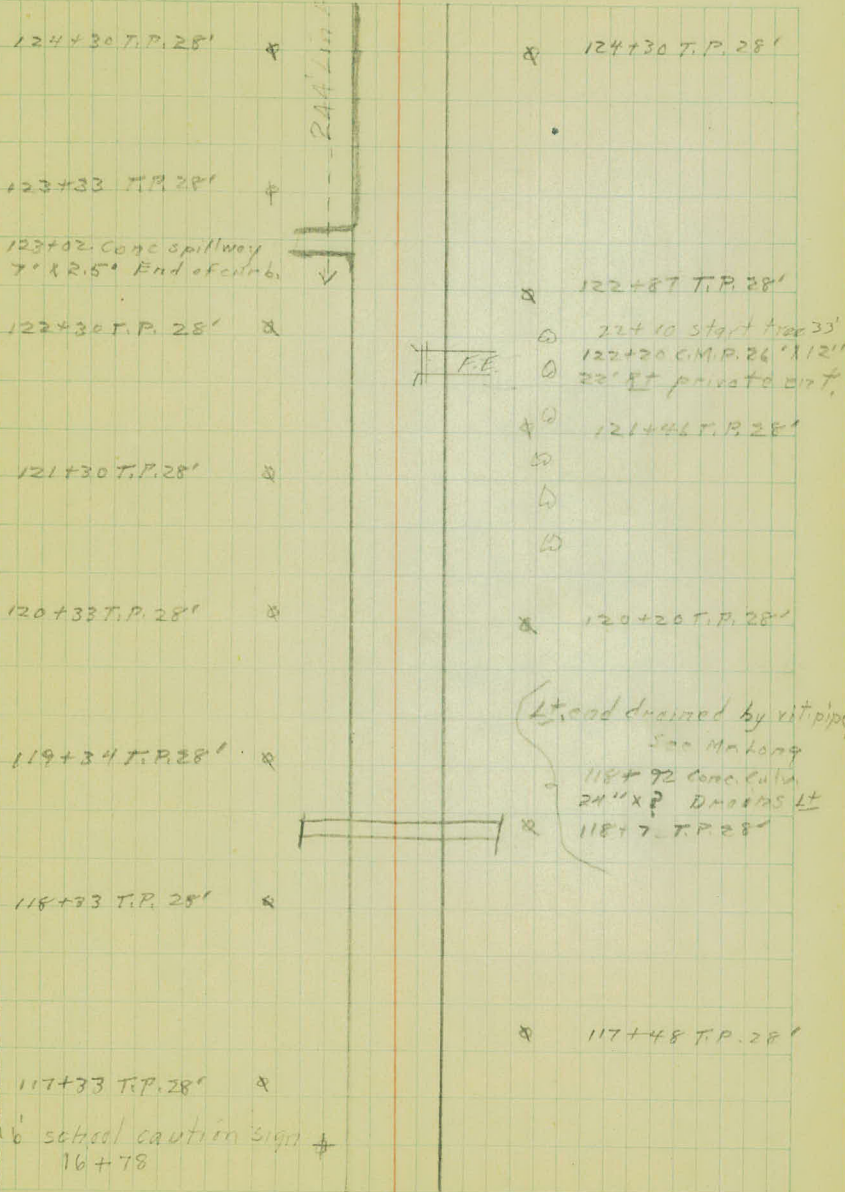 124+30 T.P. 28'
123+33 T.P. 28'
123+02 Conc spillway
7' x 2.5' End of curb.
122+30 T.P. 28'
121+30 T.P. 28'
120+33 T.P. 28'
119+34 T.P. 28'
118+33 T.P. 28'
117+33 T.P. 28'
school caution sign
16+78
244' Lin
F.E.
124+30 T.P. 28'
122+87 T.P. 28'
22+10 start tree 33'
122+20 C.M.P. 26' x 12"
22' Rt private ent.
121+46 T.P. 28'
120+20 T.P. 28'
Lt. end drained by vit. pipe
See Mr Long
118+92 Conc. Culv.
24" x ? Drains Lt
118+7 T.P. 28'
117+48 T.P. 28'